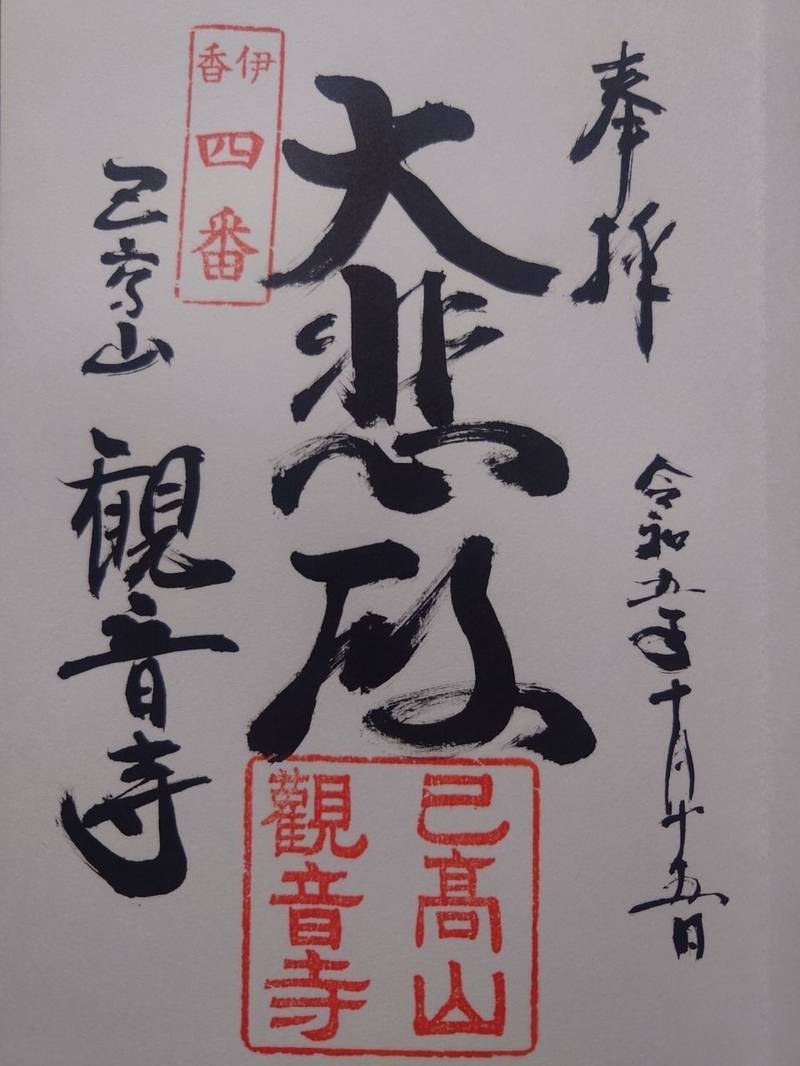 奉拝
令和五年十月十五日
大悲殿
伊香
四番
己高山
觀音寺
己高山
観音寺